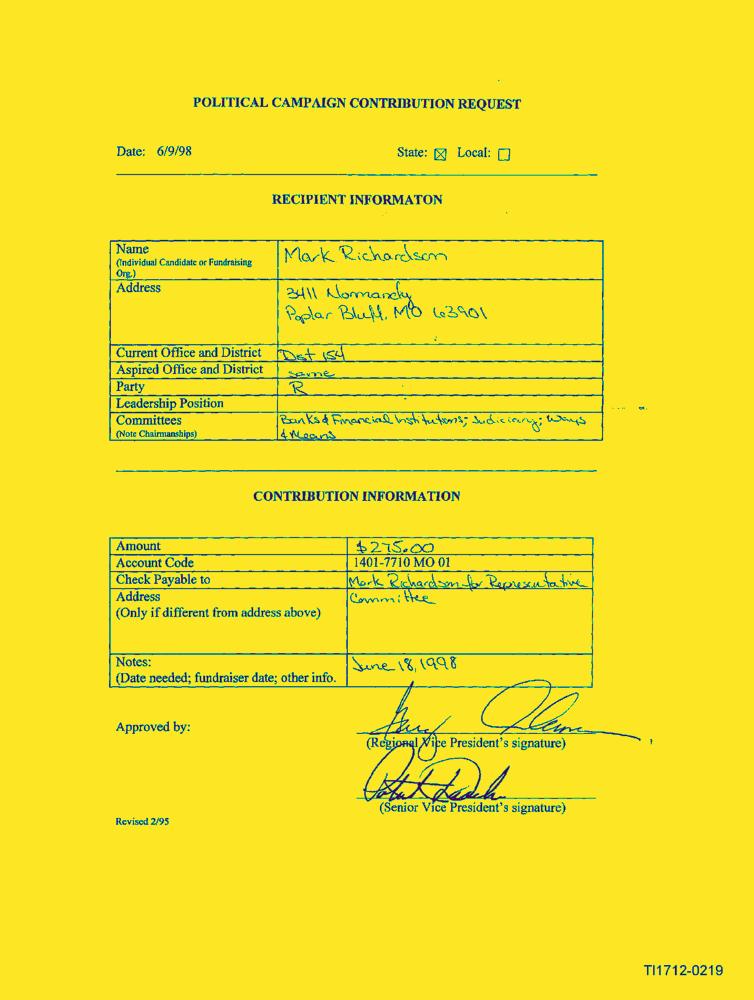 POLITICAL CAMPAIGN CONTRIBUTION REQUEST
Date: 6/9/98 State: ☒ Local: ☐
RECIPIENT INFORMATON
Name
(Individual Candidate or Fundraising
Org.)
Mark Richardson
Address
3411 Normandy
Poplar Bluff, MO 63901
Current Office and District Dist 154
Aspired Office and District same
Party R
Leadership Position
Committees
(Note Chairmanships)
Banks & Financial Institutions; Judiciary; Ways
& Means
CONTRIBUTION INFORMATION
Amount $275.00
Account Code 1401-7710 MO 01
Check Payable to Mark Richardson for Representative
Address Committee
(Only if different from address above)
Notes: June 18, 1998
(Date needed; fundraiser date; other info.
Approved by:
(Regional Vice President's signature)
(Senior Vice President's signature)
Revised 2/95
TI1712-0219